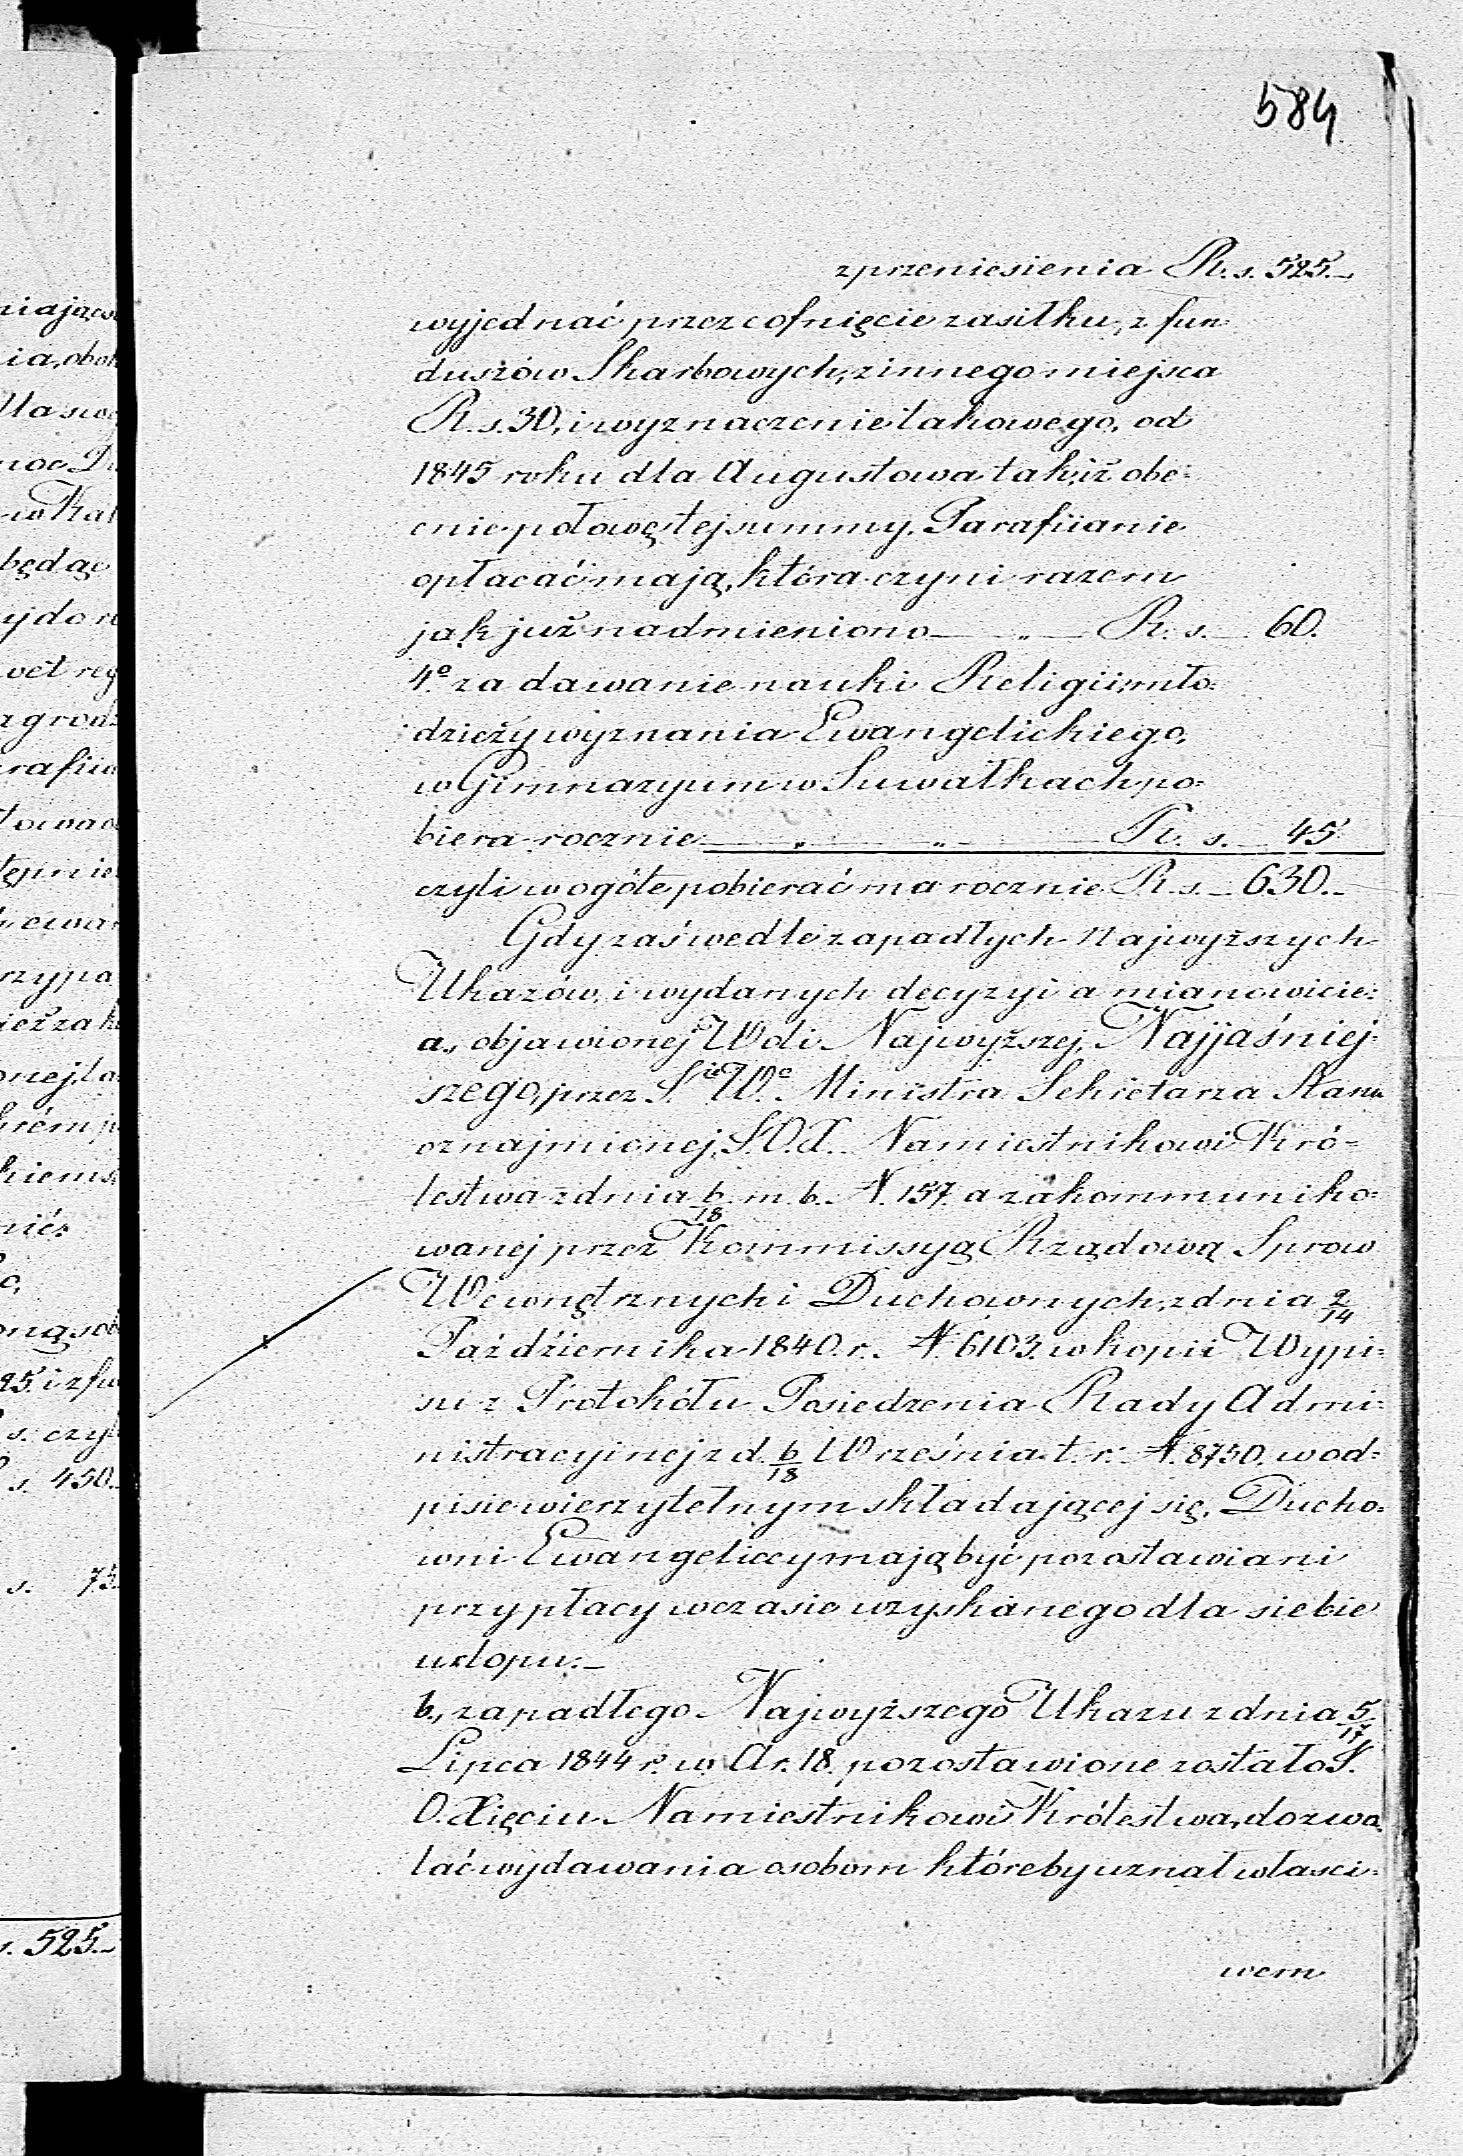 584
z przeniesienia R. s. 525.–
wyjednać przez cofnięcie zasiłku, z fun-
duszów Skarbowych, z innego miejsca
R. s. 30, i wyznaczenie takowego, od
1845 roku dla Augustowa tak, iż obe-
cnie połowę tej summy, Parafiianie
opłacać mają, która czyni razem
jak już nadmieniono — „ — R. s. — 60.
4.º za dawanie nauki Religii, mło-
dzieży wyznania Ewangelickiego,
w Gimnazyum w Suwałkach po-
biera rocznie — „ — „ — R. s. — 45
czyli w ogóle pobierać ma rocznie R. s. – 630.–
Gdy zaś wedle zapadłych Najwyższych
Ukazów, i wydanych decyzyi a mianowicie:
a, objawionej Woli Najwyższej, Najjaśniej-
szego, przez J. W. Ministra Sekretarza Stanu
oznajmionej, J. O. X. Namiestnikowi Kró-
lestwa z dnia 6/18 m. b. N. 157. a zakommuniko-
wanej przez Kommissyą Rządową Spraw
Wewnętrznych i Duchownych, z dnia 2/14
Paździérnika 1840. r. N. 6103. w kopii Wypi-
su z Protokółu Posiedzenia Rady Admi-
nistracyjnej z d. 6/18 Września t. r. N. 8750. w od-
pisie wierzytelnym składającej się, Ducho-
wni Ewangeliccy mają być pozostawiani
przy płacy w czasie uzyskanego dla siebie
urlopu.–
b, zapadłego Najwyższego Ukazu z dnia 5/17
Lipca 1844 r. w Ar. 18. pozostawione zostało J.
O. Xięciu Namiestnikowi Królestwa, dozwa-
lać wydawania osobom któreby uznał właści-
wem
s. 450.–
s. 75.–
s. 525.–